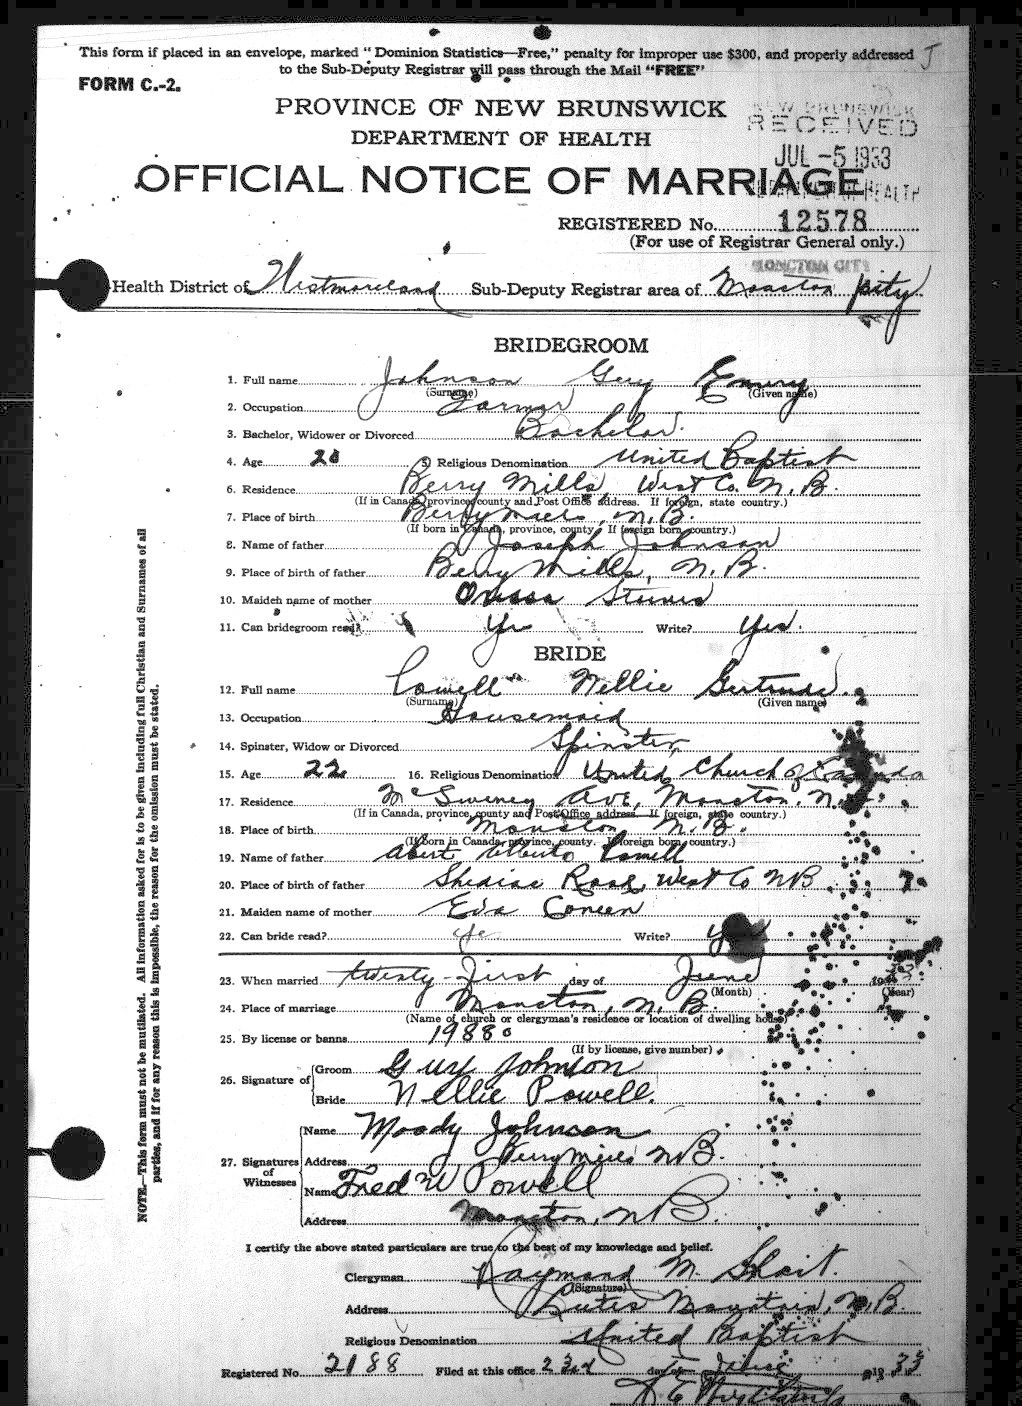 This form if placed in an envelope, marked "Dominion Statistics—Free," penalty for improper use $300, and properly addressed
to the Sub-Deputy Registrar will pass through the Mail "FREE"
FORM C.-2.
PROVINCE OF NEW BRUNSWICK
DEPARTMENT OF HEALTH
NEW BRUNSWICK
RECEIVED
JUL -5 1933
DEPARTMENT OF HEALTH
OFFICIAL NOTICE OF MARRIAGE
REGISTERED No. 12578
(For use of Registrar General only.)
MONCTON CITY
Health District of Westmoreland Sub-Deputy Registrar area of Moncton city
BRIDEGROOM
1. Full name Johnson Guy Emery
(Surname) (Given name)
2. Occupation Farmer
3. Bachelor, Widower or Divorced Bachelor.
4. Age 5. Religious Denomination United Baptist
6. Residence Berry Mills, West Co. N.B.
(If in Canada, province, county and Post Office address. If foreign, state country.)
7. Place of birth Berry Mills, N.B.
(If born in Canada, province, county. If foreign born, country.)
8. Name of father Joseph Johnson
9. Place of birth of father Berry Mills, N.B.
10. Maiden name of mother Steeves
11. Can bridegroom read? Yes Write? Yes.
BRIDE
12. Full name Powell Nellie Gertrude.
(Surname) (Given name)
13. Occupation Housemaid
14. Spinster, Widow or Divorced Spinster
15. Age 22 16. Religious Denomination United Church of Canada
17. Residence McSweney Ave, Moncton. N.B.
(If in Canada, province, county and Post Office address. If foreign, state country.)
18. Place of birth Moncton N.B.
(If born in Canada, province, county. If foreign born, country.)
19. Name of father Alberto Powell
20. Place of birth of father Shediac Road, West Co NB
21. Maiden name of mother Eva
22. Can bride read? Yes Write? Yes
23. When married twenty-first day of June 1933
(Month) (Year)
24. Place of marriage Moncton, N.B.
(Name of church or clergyman's residence or location of dwelling house)
25. By license or banns 19880
(If by license, give number)
26. Signature of Groom Guy Johnson
Bride Nellie Powell.
27. Signatures of Witnesses Name Moody Johnson
Address Berry Mills NB.
Name Fred W Powell
Address Moncton, N B.
I certify the above stated particulars are true to the best of my knowledge and belief.
Clergyman Raymond M. Short.
(Signature)
Address Lutes Mountain, N.B.
Religious Denomination United Baptist
Registered No. 2188 Filed at this office 23rd day of June 1933
NOTE.—This form must not be mutilated. All information asked for is to be given including full Christian and Surnames of all
parties, and if for any reason this is impossible, the reason for the omission must be stated.